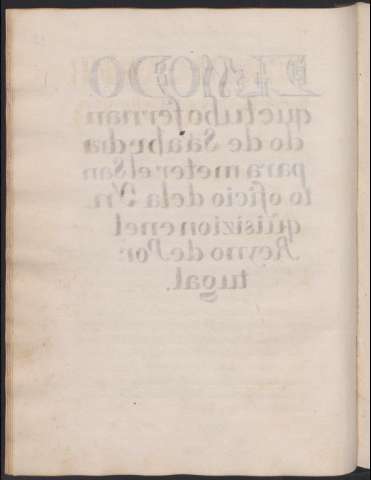 EL MODO
que tubo fernan
do de Saabedra
para meter el San
to oficio de la Yn.
quisizion en el
Reyno de Por
tugal.